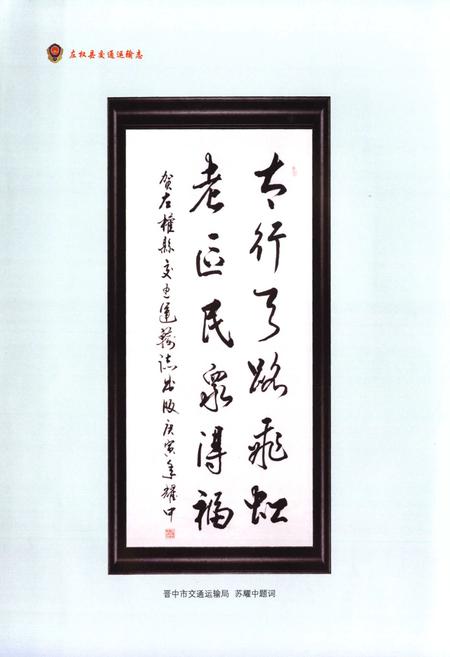 左权县交通运输志
太行天路飞虹
老区民众得福
贺左权县交通运输志出版庚寅年耀中
晋中市交通运输局 苏耀中题词